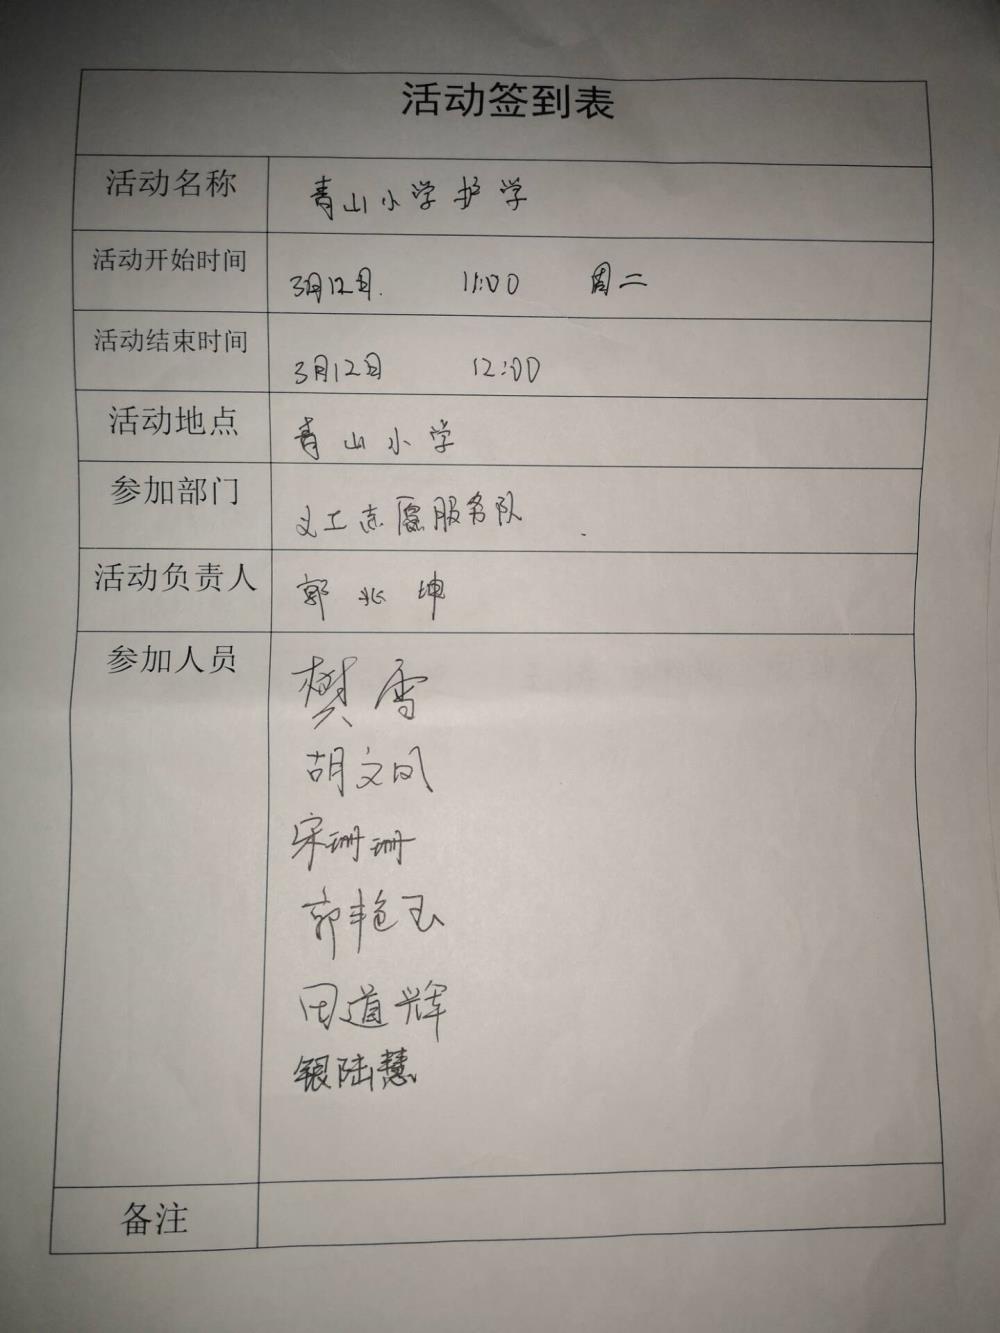 活动签到表
活动名称 青山小学护学
活动开始时间 3月12日. 11:00 周二
活动结束时间 3月12日 12:00
活动地点 青山小学
参加部门 义工志愿服务队
活动负责人 郭兆坤
参加人员 樊雪
胡文凤
宋珊珊
郭艳玉
田道辉
银陆慧
备注